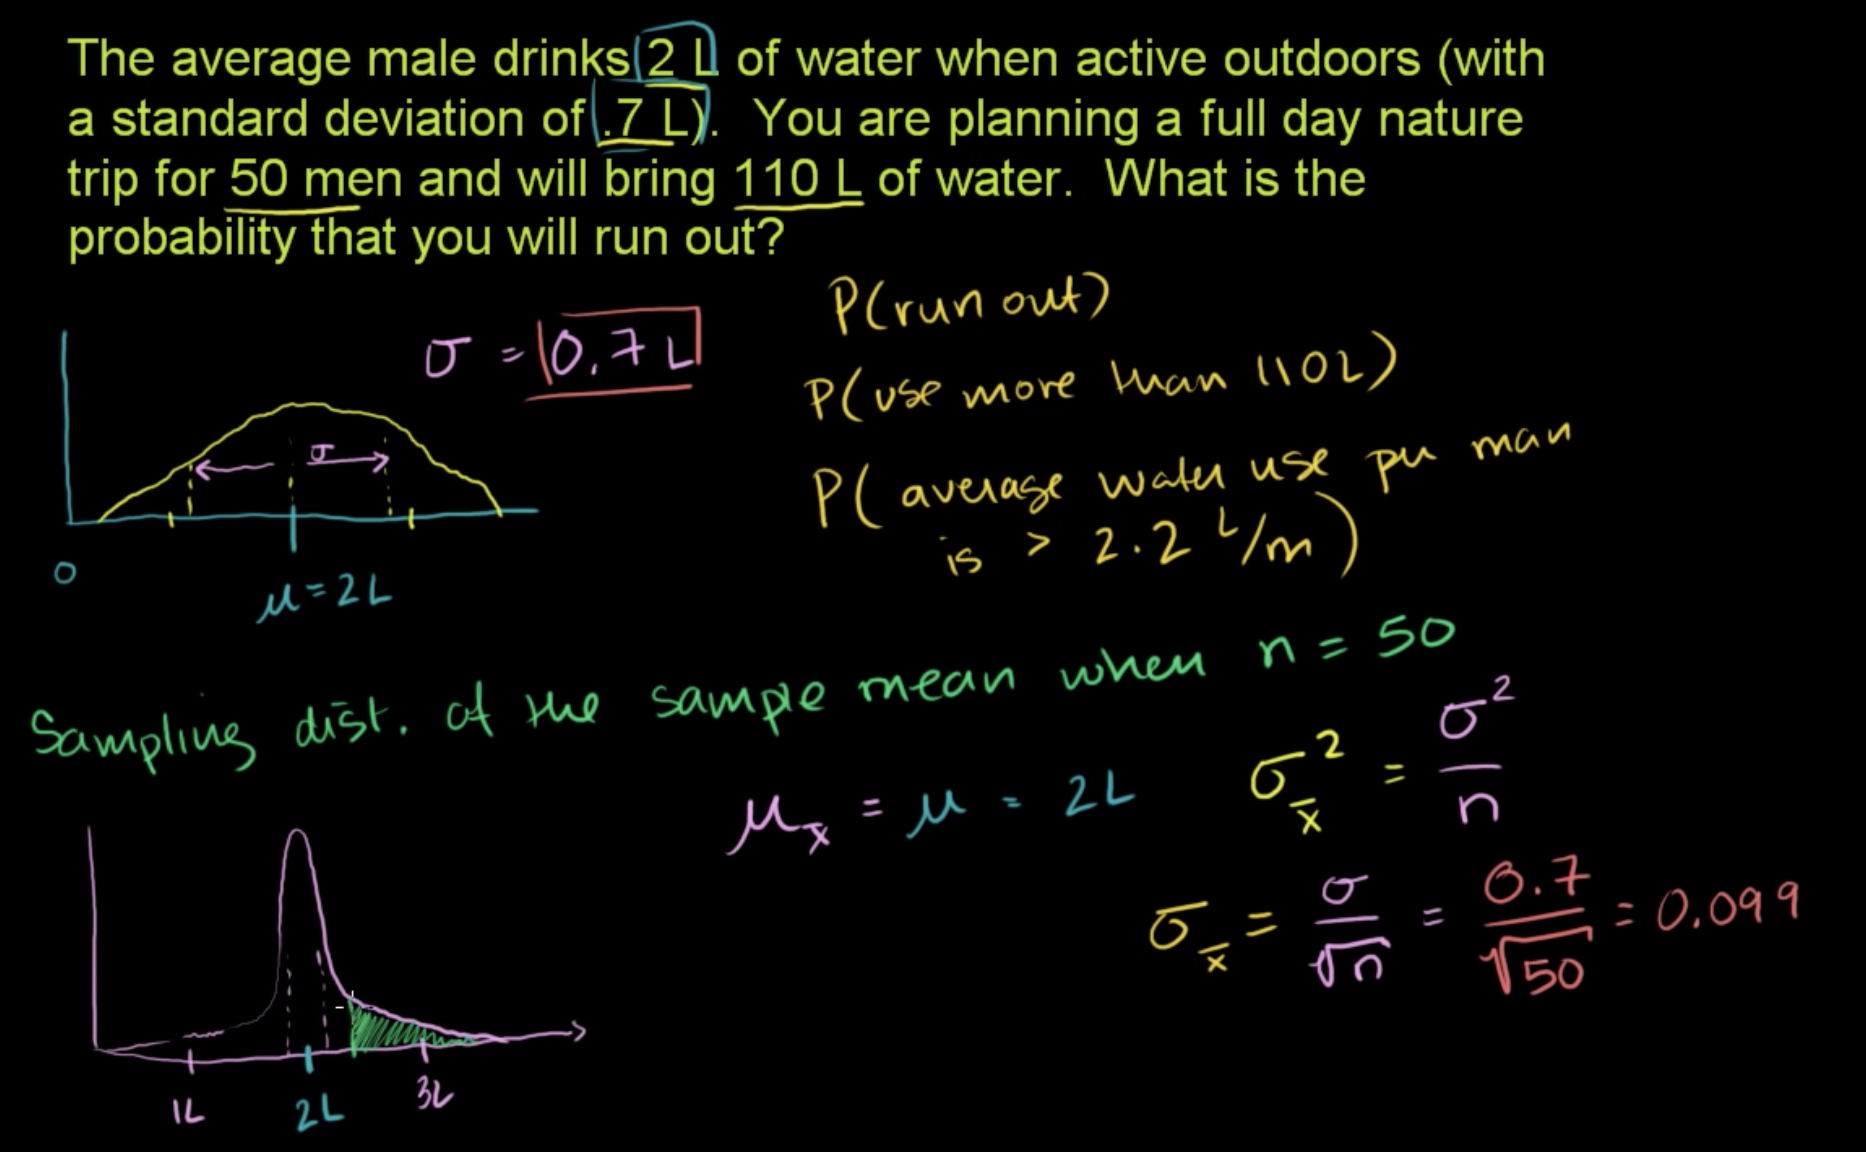 The average male drinks 2 L of water when active outdoors (with
a standard deviation of .7 L). You are planning a full day nature
trip for 50 men and will bring 110 L of water. What is the
probability that you will run out?
P(run out)
σ = 0.7 L
P(use more than 110L)
σ
P(average water use per man
is > 2.2 L/m)
0
μ = 2L
Sampling dist. of the sample mean when n = 50
μ_x̄ = μ = 2L
σ_x̄² = σ²/n
σ_x̄ = σ/√n = 0.7/√50 = 0.099
1L 2L 3L